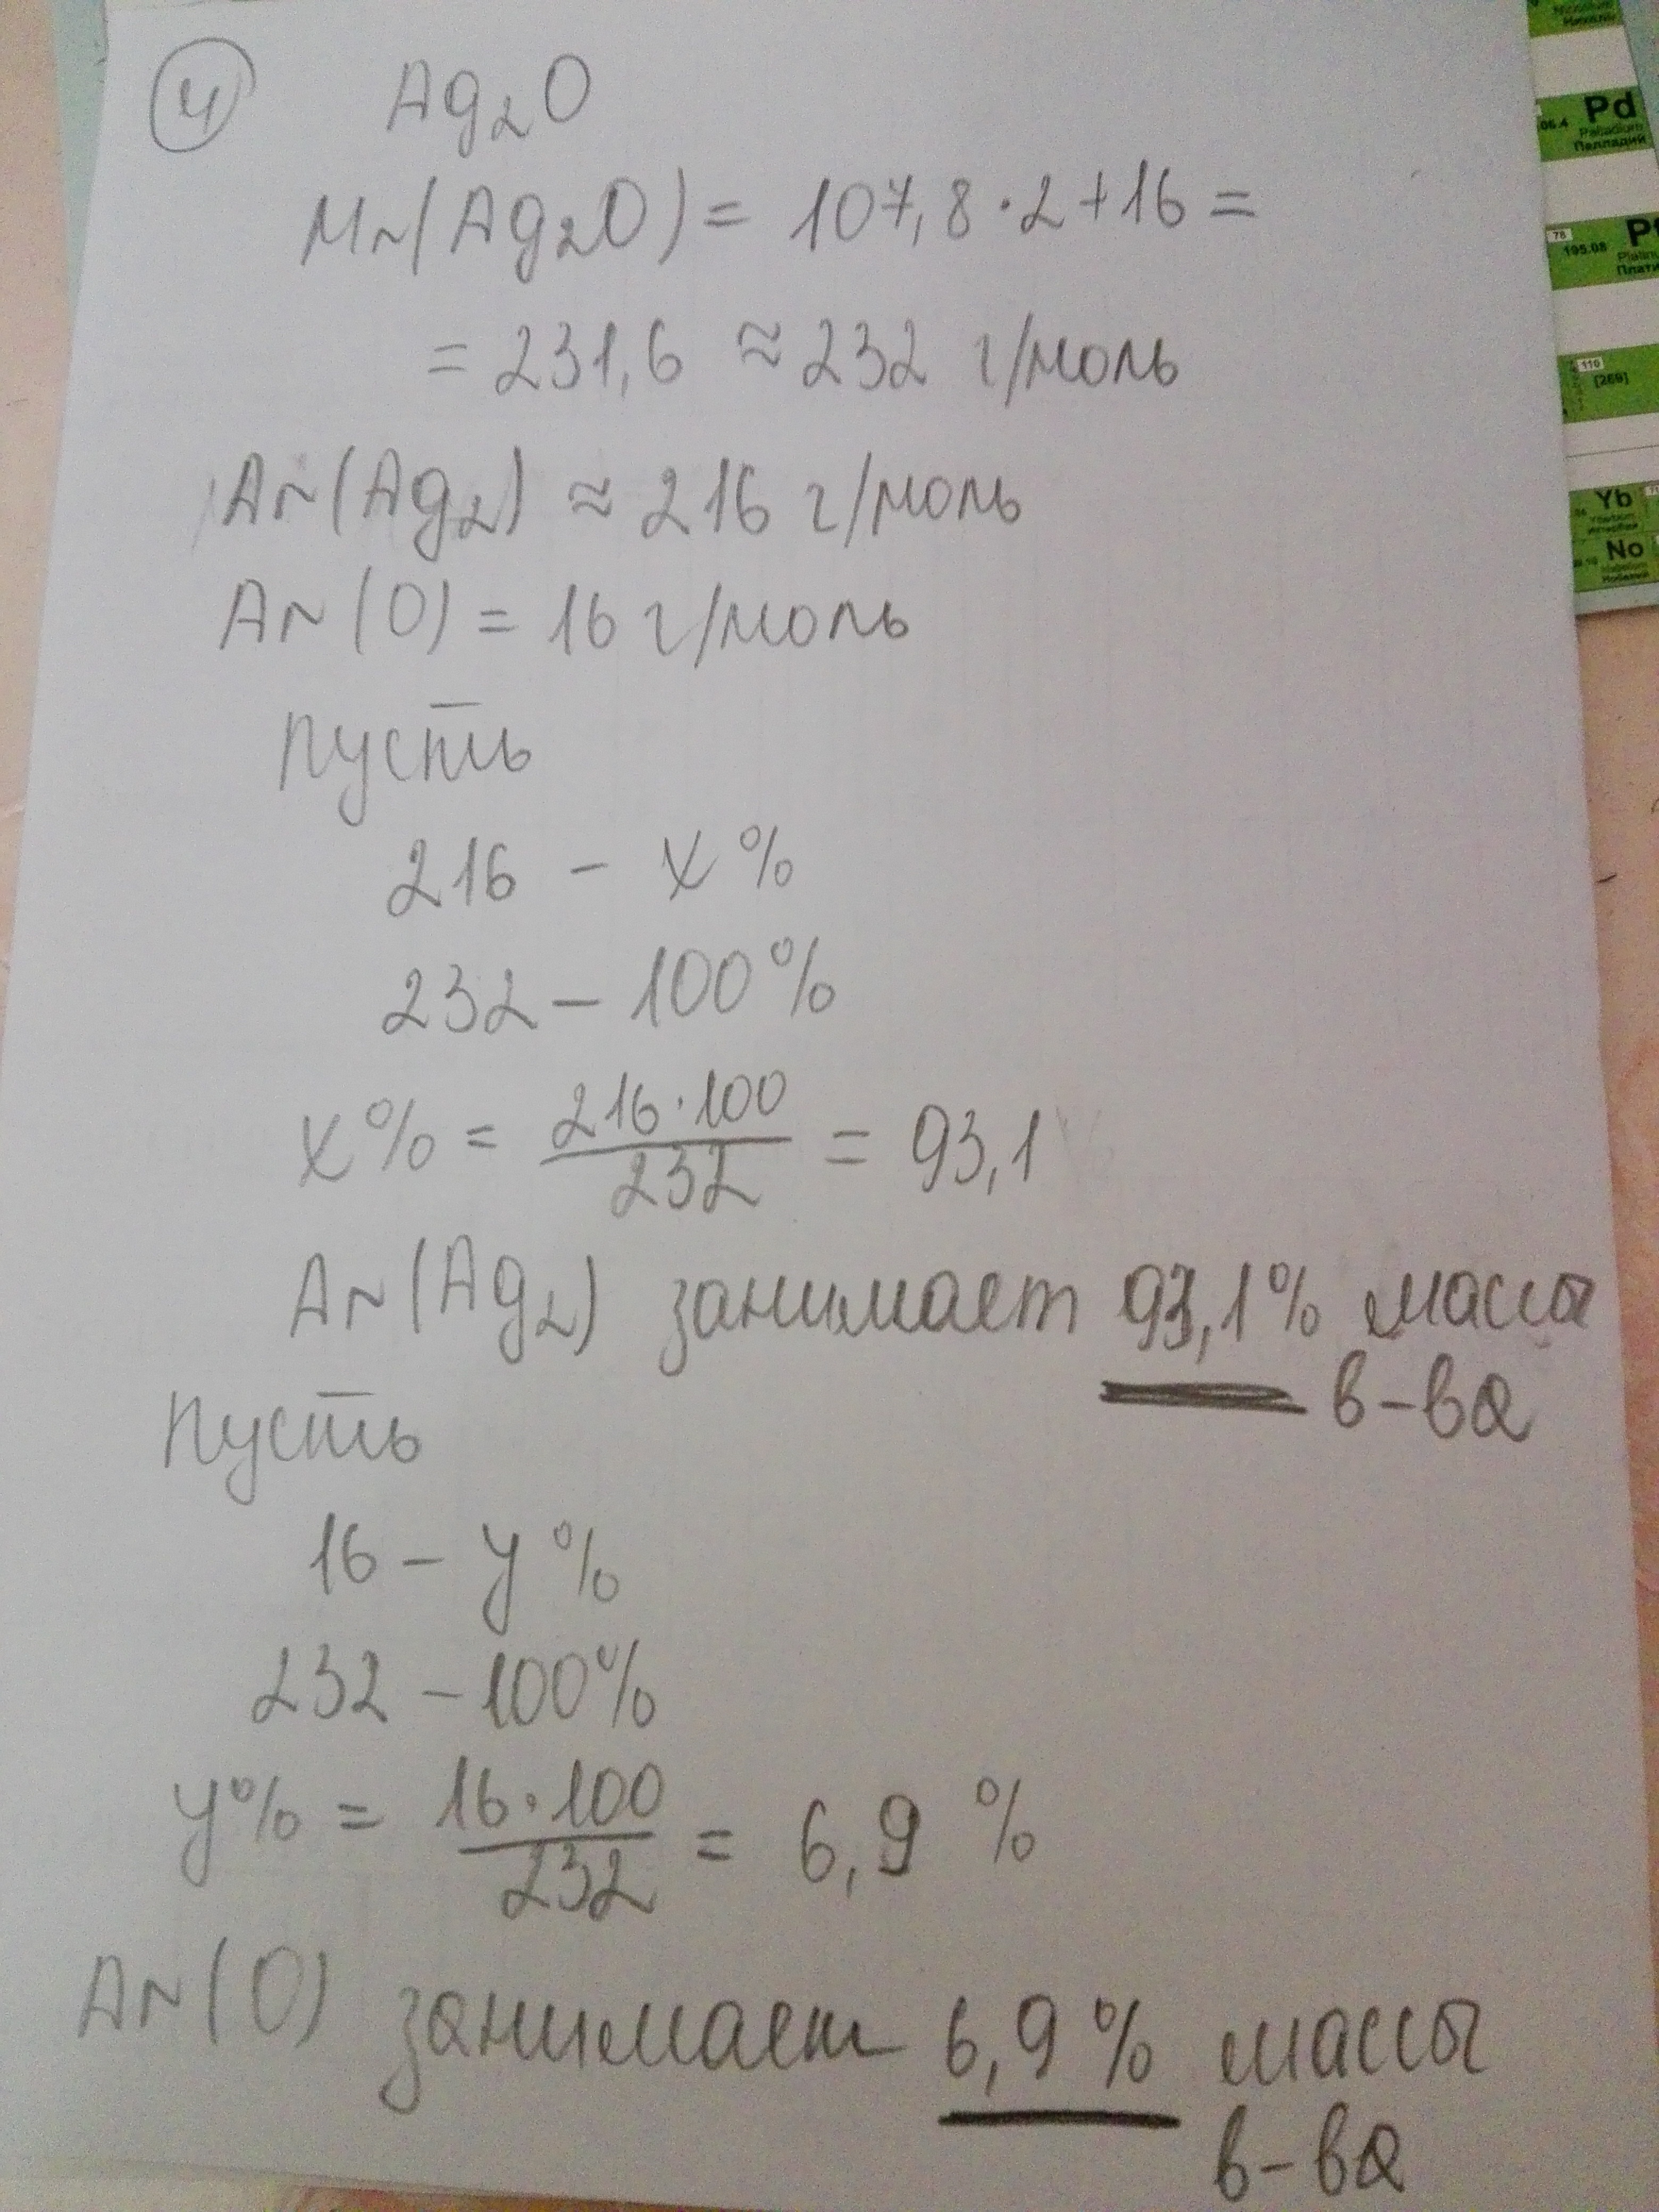 4 Ag₂O
Mr(Ag₂O) = 107,8·2+16 =
= 231,6 ≈ 232 г/моль
Ar(Ag₂) ≈ 216 г/моль
Ar(O) = 16 г/моль
Пусть
216 – x%
232 – 100%
x% = 216·100/232 = 93,1
Ar(Ag₂) занимает 93,1% массы
в-ва
Пусть
16 – y%
232 – 100%
y% = 16·100/232 = 6,9 %
Ar(O) занимает 6,9% массы
в-ва
06.4 Pd
Palladium
Палладий
78
195.08
110
[269]
Yb
No